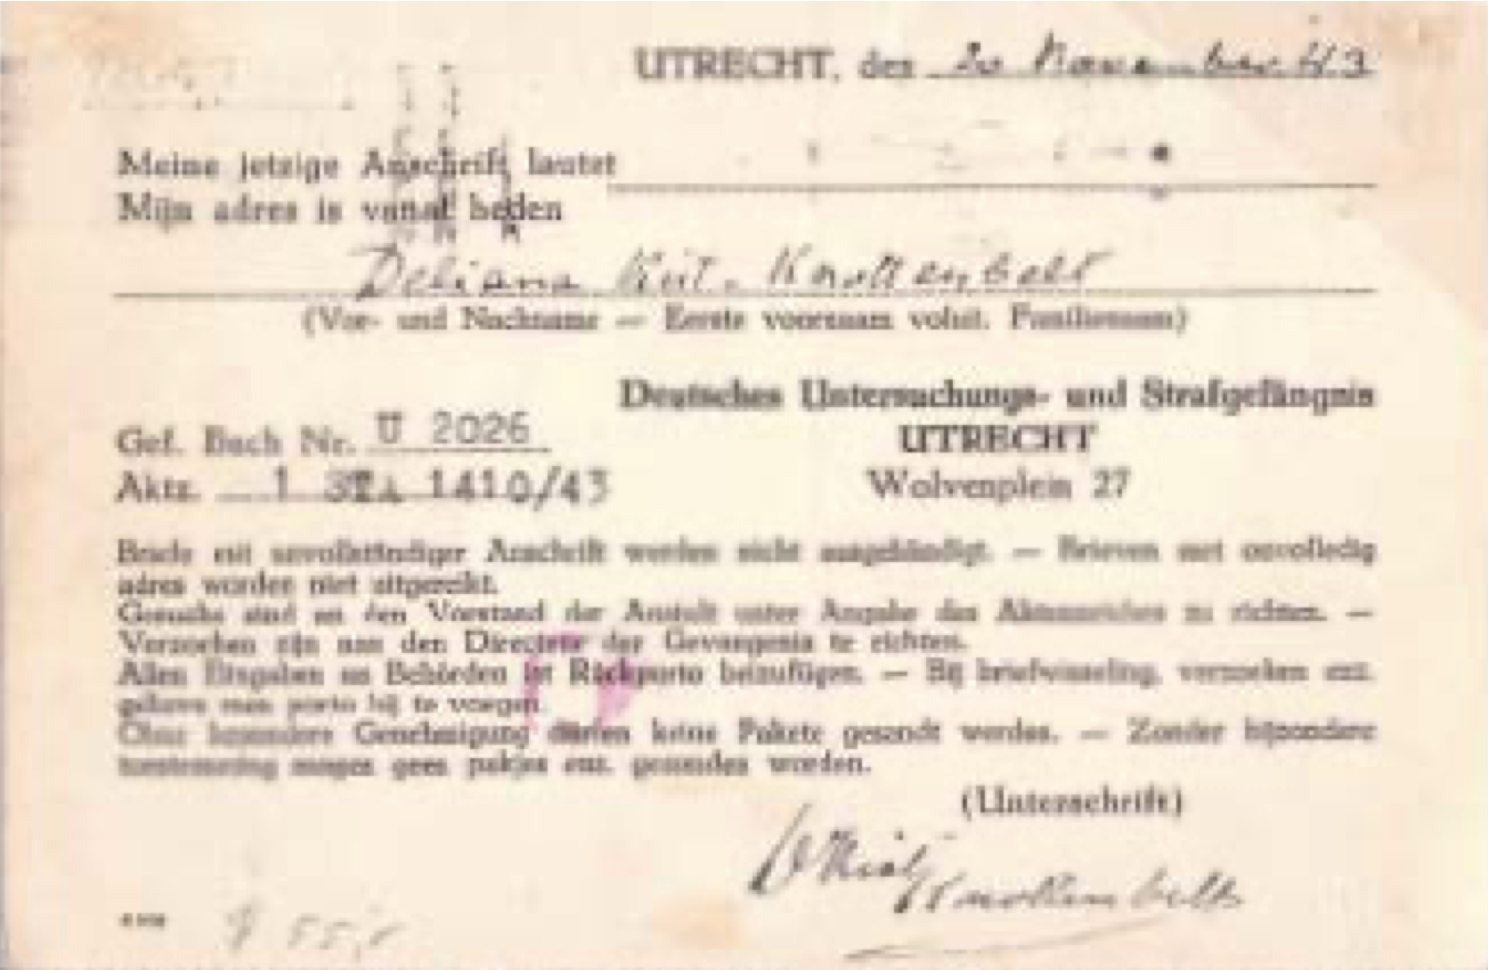 UTRECHT, den 20 November 43
Meine jetzige Anschrift lautet
Mijn adres is vanaf heden
Deliana Knottenbelt
(Vor- und Nachname — Eerste voornaam voluit. Familienaam)
Deutsches Untersuchungs- und Strafgefängnis
Gef. Buch Nr. U 2026
UTRECHT
Aktz. 1 STA 1410/43
Wolvenplein 27
Briefe mit unvollständiger Anschrift werden nicht ausgehändigt. — Brieven met onvolledig
adres worden niet uitgereikt.
Gesuche sind an den Vorstand der Anstalt unter Angabe des Aktenzeichen zu richten. —
Verzoeken zijn aan den Directeur der Gevangenis te richten.
Allen Eingaben an Behörden ist Rückporto beizufügen. — Bij briefwisseling, verzoeken enz.
gelieve men porto bij te voegen.
Ohne besondere Genehmigung dürfen keine Pakete gesandt werden. — Zonder bijzondere
toestemming mogen geen pakjes enz. gezonden worden.
(Unterschrift)
Knottenbelt